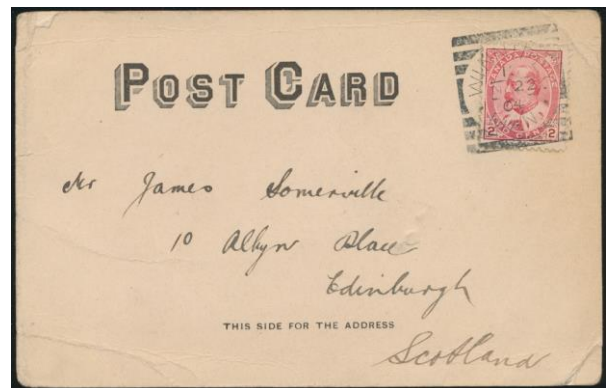 POST CARD
22
2 2
Mr James Somerville
10 Albyn Place
Edinburgh
THIS SIDE FOR THE ADDRESS
Scotland